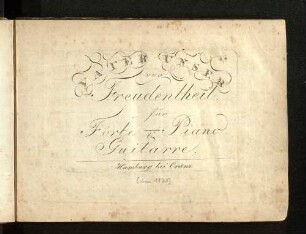 VATER UNSER
von
Freudentheil
für
Forte Piano
Guitarre.
Hamburg bei Cranz